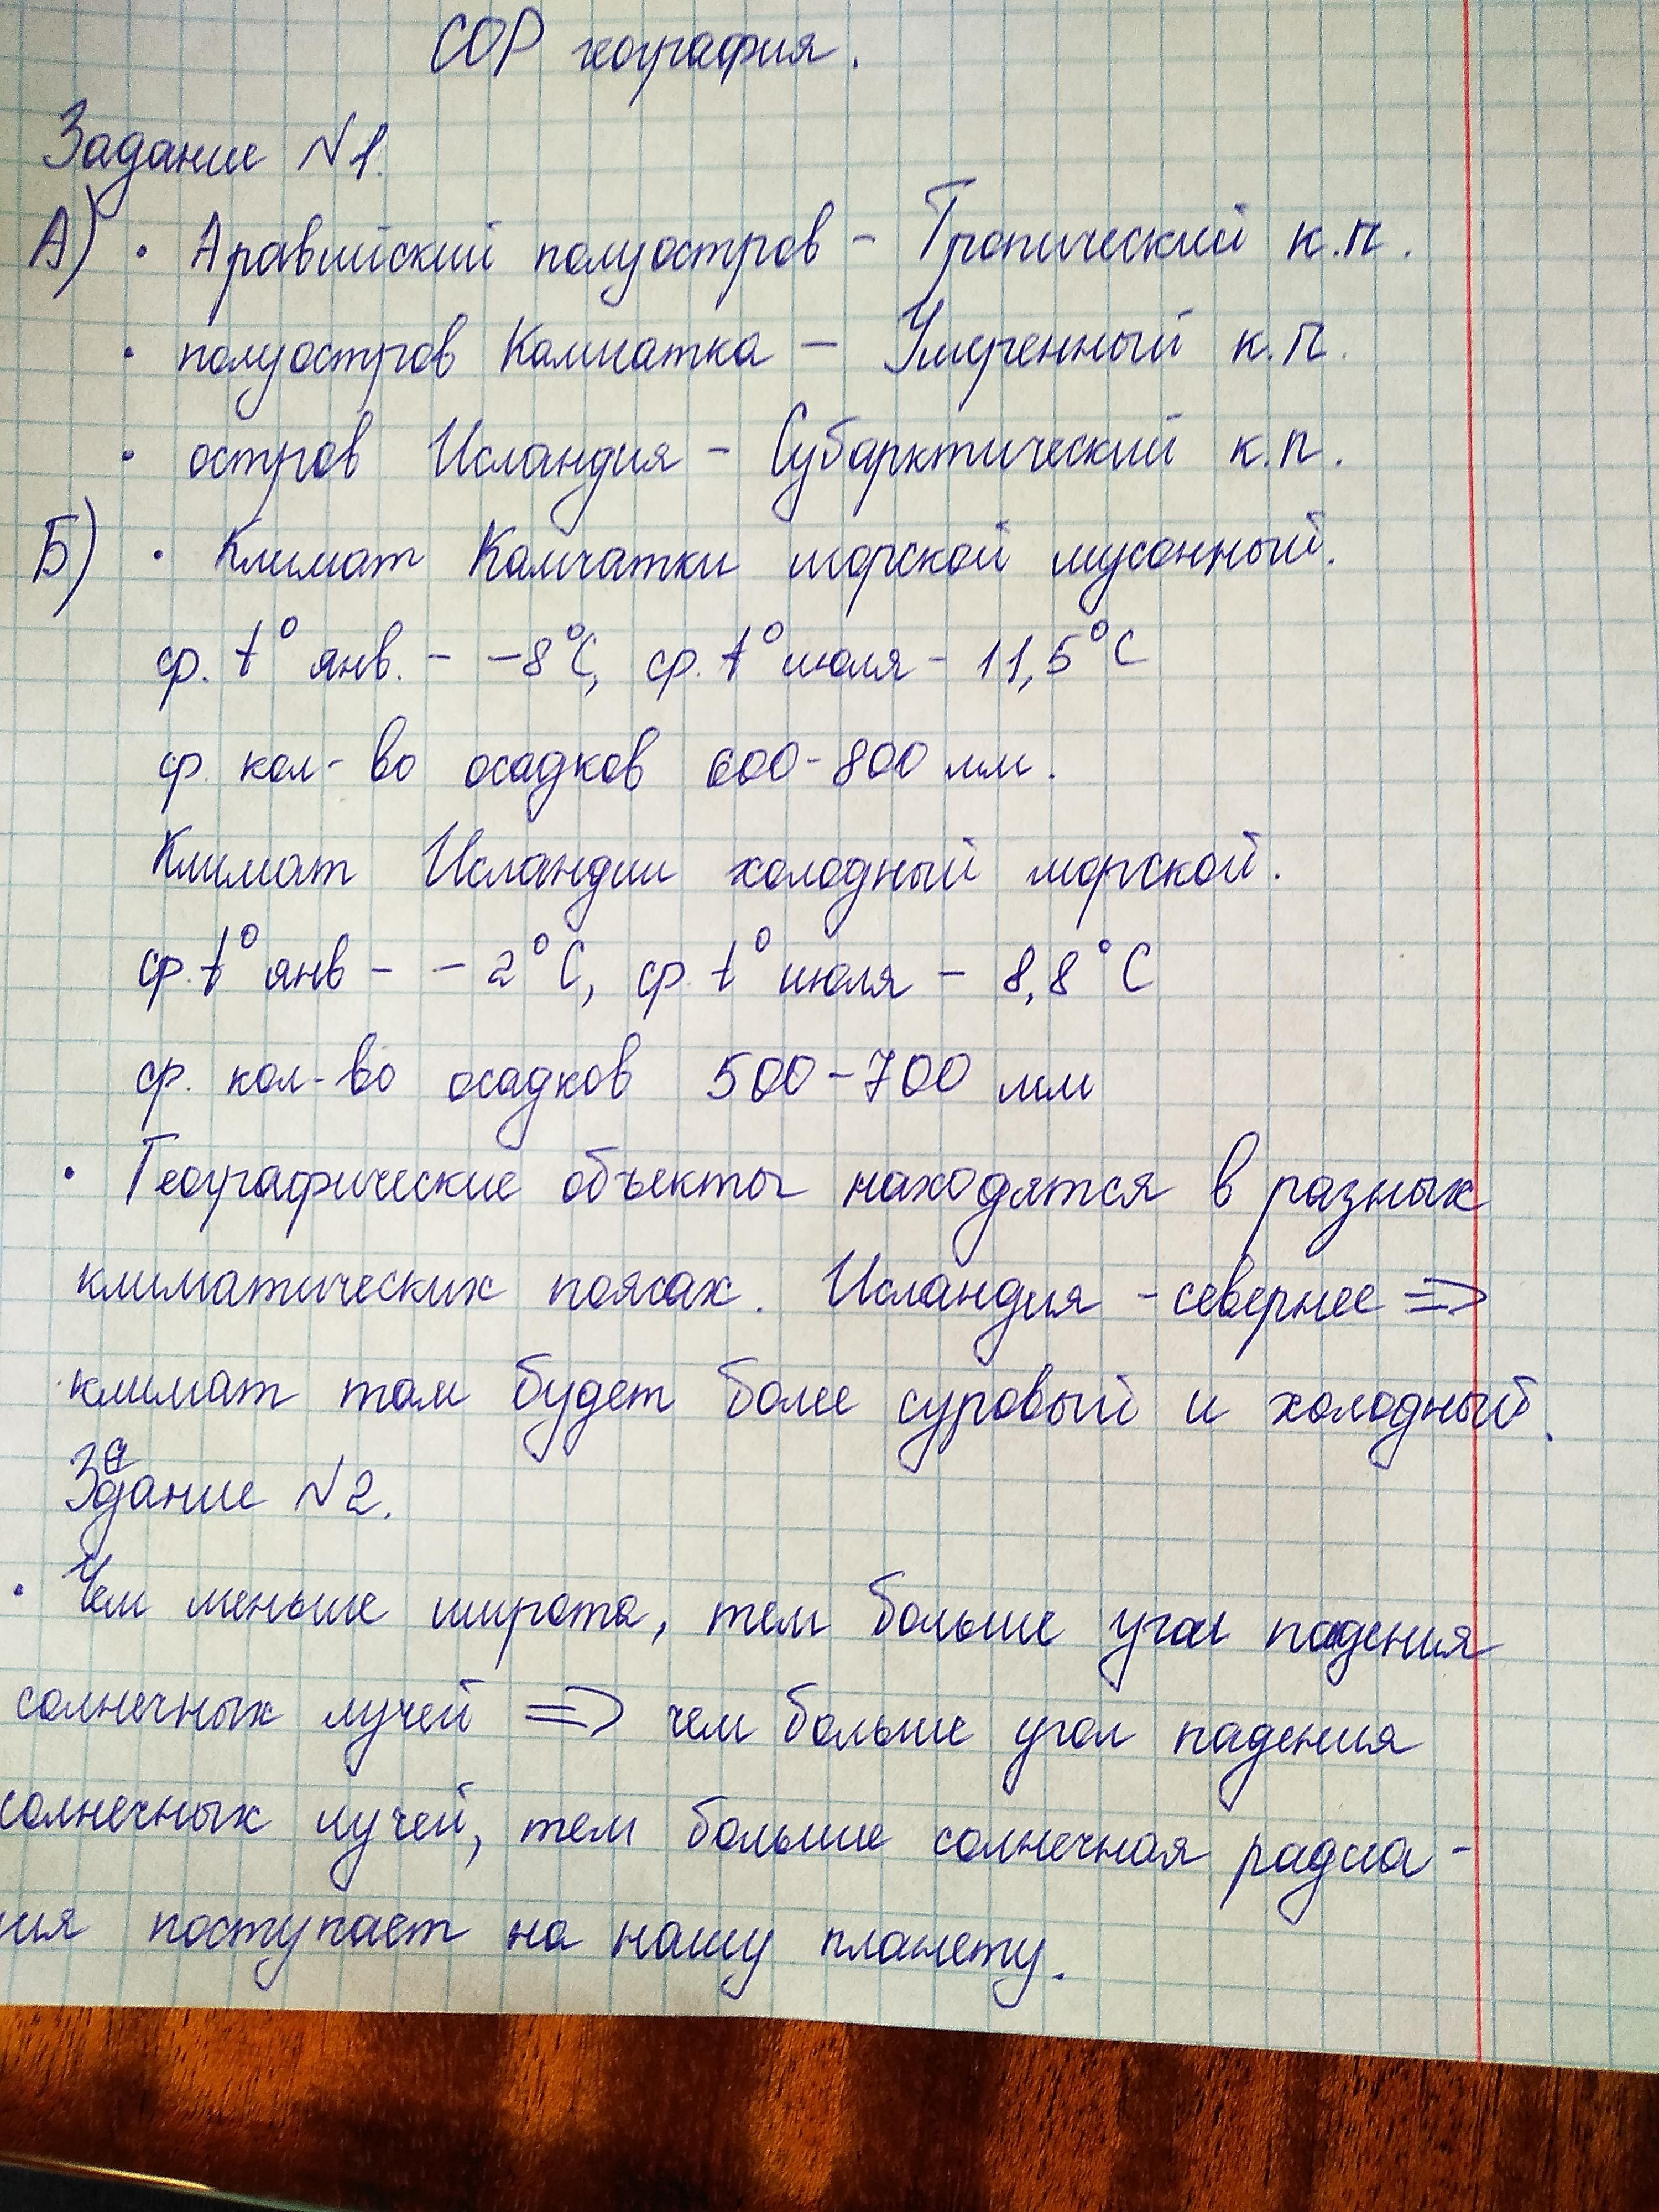 СОР география.
Задание №1.
А) • Аравийский полуостров - Тропический к.п.
• полуостров Камчатка — Умеренный к.п.
• остров Исландия - Субарктический к.п.
Б) • Климат Камчатки морской муссонный.
ср. t° янв. - -8°С, ср. t° июля - 11,5°С
ср. кол-во осадков 600-800 мм.
Климат Исландии холодный морской.
ср. t° янв - -2°С, ср. t° июля - 8,8°С
ср. кол-во осадков 500-700 мм
• Географические объекты находятся в разных
климатических поясах. Исландия - севернее =>
климат там будет более суровый и холодный.
Задание №2.
• Чем меньше широта, тем больше угол падения
солнечных лучей => чем больше угол падения
солнечных лучей, тем больше солнечная радиа-
ия поступает на нашу планету.